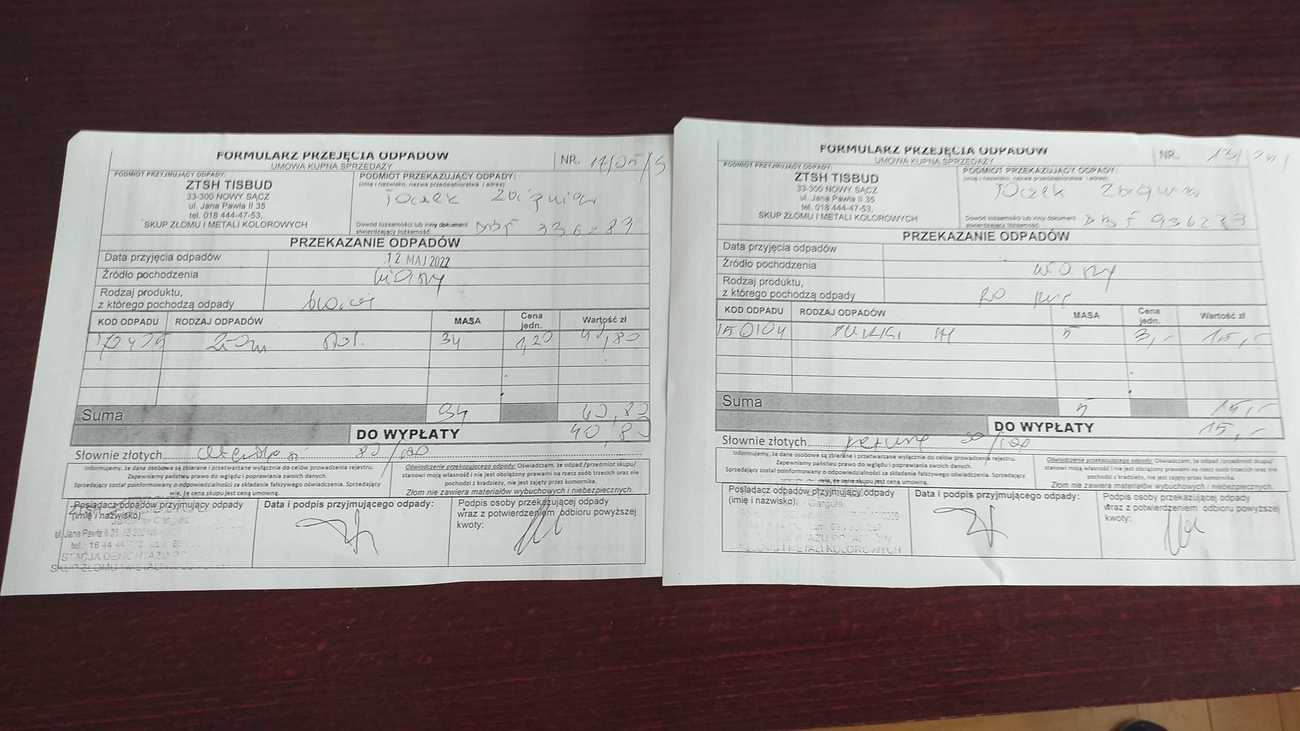 FORMULARZ PRZEJĘCIA ODPADÓW
UMOWA KUPNA SPRZEDAŻY
NR.
PODMIOT PRZYJMUJĄCY ODPADY:
ZTSH TISBUD
33-300 NOWY SĄCZ
ul. Jana Pawła II 35
tel. 018 444-47-53,
SKUP ZŁOMU I METALI KOLOROWYCH
PODMIOT PRZEKAZUJĄCY ODPADY:
(imię i nazwisko, nazwa przedsiębiorstwa i adres)
Dowód tożsamości lub inny dokument
stwierdzający tożsamość
PRZEKAZANIE ODPADÓW
Data przyjęcia odpadów 12 MAJ 2022
Źródło pochodzenia
Rodzaj produktu,
z którego pochodzą odpady
KOD ODPADU RODZAJ ODPADÓW MASA Cena jedn. Wartość zł
34 1,20 40,80
Suma 34 40,80
DO WYPŁATY 40,80
Słownie złotych 80/100
Informujemy, że dane osobowe są zbierane i przetwarzane wyłącznie do celów prowadzenia rejestru.
Zapewniamy państwu prawo do wglądu i poprawiania swoich danych.
Sprzedający został poinformowany o odpowiedzialności za składanie fałszywego oświadczenia. Sprzedający
wie, że cena skupu jest ceną umowną.
Oświadczenie przekazującego odpady: Oświadczam, że odpad /przedmiot skupu/
stanowi moją własność i nie jest obciążony prawami na rzecz osób trzecich oraz nie
pochodzi z kradzieży, nie jest zajęty przez komornika.
Złom nie zawiera materiałów wybuchowych i niebezpiecznych.
Posiadacz odpadów przyjmujący odpady
(imię i nazwisko):
Data i podpis przyjmującego odpady:
Podpis osoby przekazującej odpady
wraz z potwierdzeniem odbioru powyższej
kwoty:
FORMULARZ PRZEJĘCIA ODPADÓW
UMOWA KUPNA SPRZEDAŻY
NR.
PODMIOT PRZYJMUJĄCY ODPADY:
ZTSH TISBUD
33-300 NOWY SĄCZ
ul. Jana Pawła II 35
tel. 018 444-47-53,
SKUP ZŁOMU I METALI KOLOROWYCH
PODMIOT PRZEKAZUJĄCY ODPADY:
(imię i nazwisko, nazwa przedsiębiorstwa i adres)
Dowód tożsamości lub inny dokument
stwierdzający tożsamość
PRZEKAZANIE ODPADÓW
Data przyjęcia odpadów
Źródło pochodzenia
Rodzaj produktu,
z którego pochodzą odpady
KOD ODPADU RODZAJ ODPADÓW MASA Cena jedn. Wartość zł
150104 5 3,- 15,-
Suma 5 15,-
DO WYPŁATY 15,-
Słownie złotych
Informujemy, że dane osobowe są zbierane i przetwarzane wyłącznie do celów prowadzenia rejestru.
Zapewniamy państwu prawo do wglądu i poprawiania swoich danych.
Sprzedający został poinformowany o odpowiedzialności za składanie fałszywego oświadczenia. Sprzedający
wie, że cena skupu jest ceną umowną.
Oświadczenie przekazującego odpady: Oświadczam, że odpad /przedmiot skupu/
stanowi moją własność i nie jest obciążony prawami na rzecz osób trzecich oraz nie
pochodzi z kradzieży, nie jest zajęty przez komornika.
Złom nie zawiera materiałów wybuchowych i niebezpiecznych.
Posiadacz odpadów przyjmujący odpady
(imię i nazwisko):
Data i podpis przyjmującego odpady:
Podpis osoby przekazującej odpady
wraz z potwierdzeniem odbioru powyższej
kwoty: